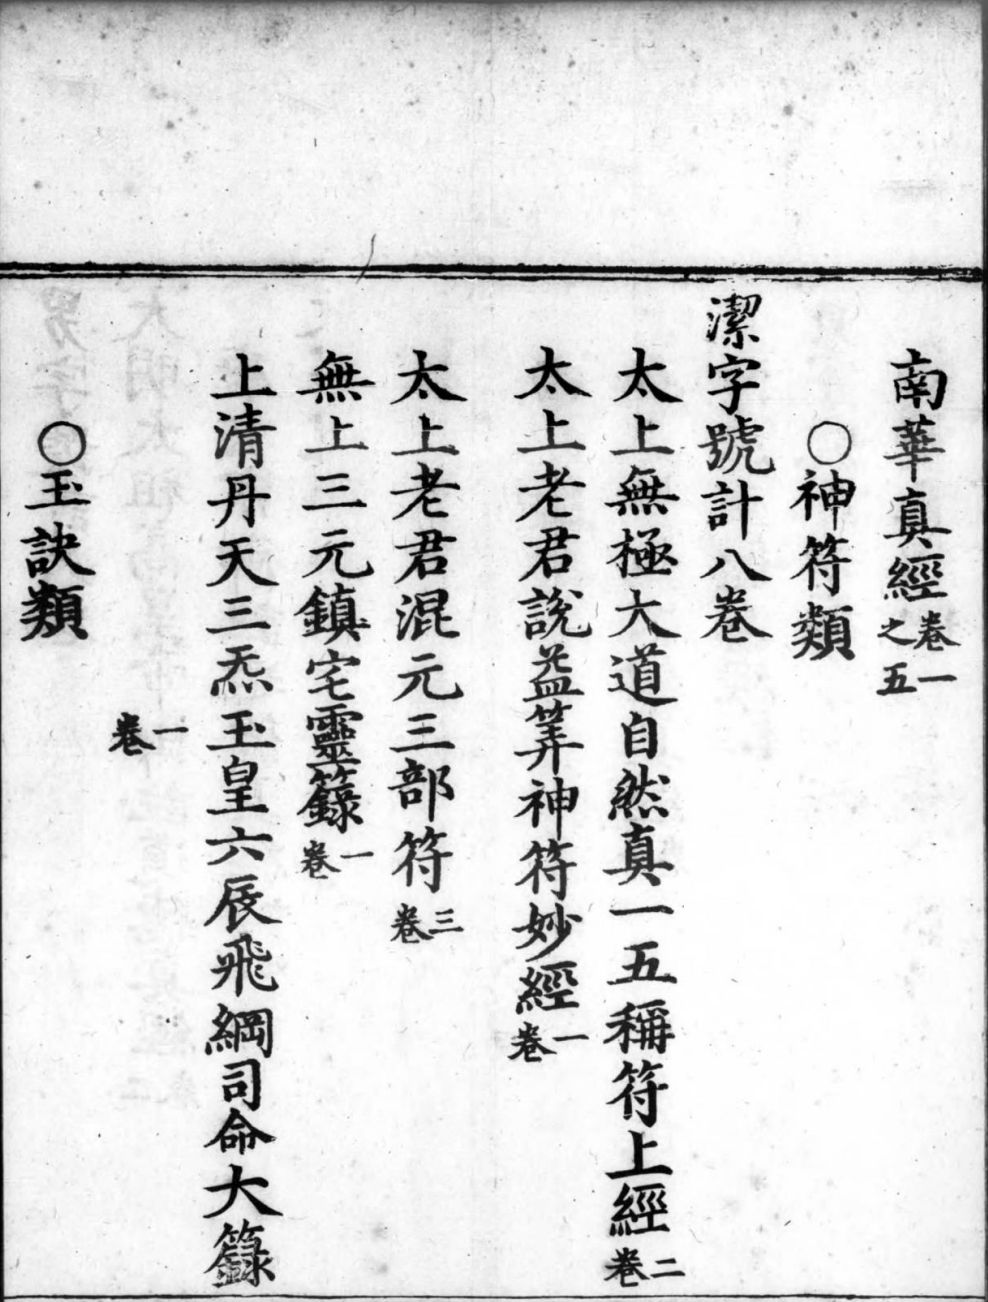 南華真經卷一之五
○神符類
潔字號計八卷
太上無極大道自然真一五稱符上經二卷
太上老君說益筭神符妙經一卷
太上老君混元三部符三卷
無上三元鎮宅靈籙一卷
上清丹天三炁玉皇六辰飛綱司命大籙
一卷
○玉訣類